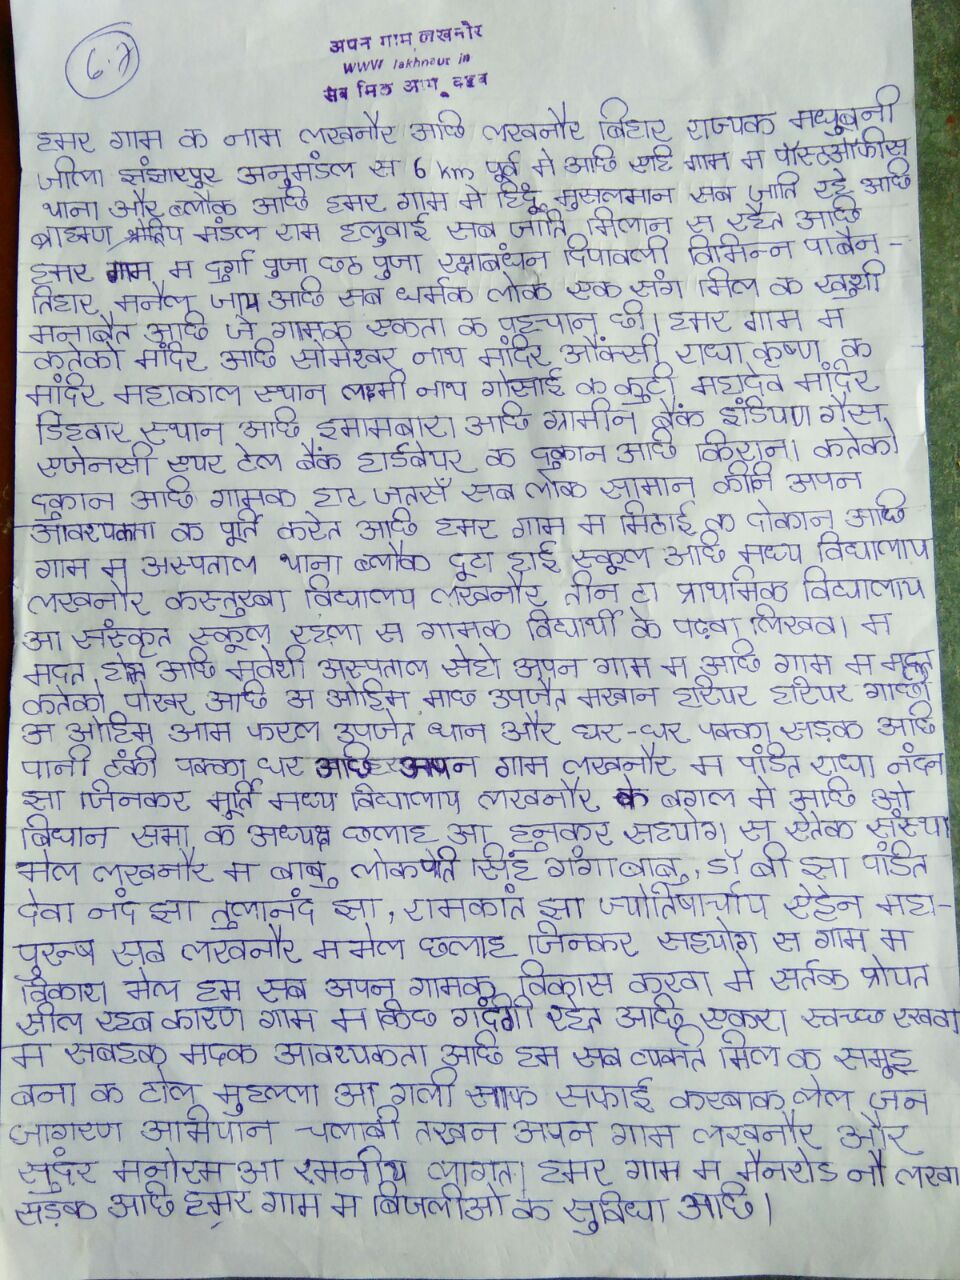 6.7
अपन गाम लखनौर
WWW lakhnaur in
सब मिल आगू बढब
हमर गाम क नाम लखनौर अछि लखनौर बिहार राज्यक मधुबनी
जीला झंझारपुर अनुमंडल स 6 km पूर्व मे अछि एहि गाम म पोस्टऑफीस
थाना और ब्लौक अछि हमर गाम मे हिंदू मुसलमान सब जाति रहै अछि
ब्राह्मण श्रोत्रिय मंडल राम हलुवाई सब जाति मिलान स रहैत अछि
हमर गाम म दुर्गा पुजा छठ पुजा रक्षाबंधन दिपावली विभिन्न पाबैन -
तिहार मनैल जाय अछि सब धर्मक लोक एक संग मिल क खुशी
मनाबैत अछि जे गामक एकता क पहचान छी। हमर गाम म
कतेको मंदिर अछि सोमेश्वर नाथ मंदिर औंकसी राधा कृष्ण क
मंदिर महाकाल स्थान लक्ष्मी नाथ गोसाई क कुटी महादेव मंदिर
डिहबार स्थान अछि इमामबारा अछि ग्रामीन बैंक इंडियण गैस
एजेनसी एयर टेल बैंक हार्डवेयर क दुकान अछि किराना कतेको
दुकान अछि गामक हाट जतसँ सब लोक सामान कीनि अपन
आवश्यकता क पूर्ति करैत अछि हमर गाम म मिठाई क दोकान अछि
गाम म अस्पताल थाना ब्लौक दूटा हाई स्कूल अछि मध्य विद्यालाय
लखनौर कस्तुरबा विद्यालय लखनौर तीन टा प्राथमिक विद्यालाय
आ संस्कृत स्कूल रहला स गामक विद्यार्थी के पढबा लिखबा म
मदत होत अछि मवेशी अस्पताल सेहो अपन गाम म अछि गाम म
कतेको पोखर अछि अ ओहिम माछ उपजैत मखान हरियर हरियर गाछी
अ ओहिम आम फरल उपजेत धान और घर-घर पक्का सड़क अछि
पानी टंकी पक्का घर अछि अपन गाम लखनौर म पंडित राधा नंदन
झा जिनकर मूर्ति मध्य विद्यालाय लखनौर के बगल मे अछि ओ
बिधान सभा क अध्यक्ष छलाह आ हुनकर सहयोग स ऐतेक संस्था
भेल लखनौर म बाबु लोकपति सिंह गंगा बाबु, डॉ बी झा पंडित
देवा नंद झा तुलानंद झा, रामकांत झा ज्योतिषाचार्य ऐहेन महा-
पुरुष सब लखनौर म भेल छलाह जिनकर सहयोग स गाम म
विकास भेल हम सब अपन गामक विकास करबा मे सर्तक प्रोयत
सील रहब कारण गाम म किछ गंदगी रहैत अछि एकरा स्वच्छ रखबा
म सबहक मदक आवश्यकता अछि हम सब व्यक्ति मिल क समूह
बना क टोल मुहल्ला आ गली साफ सफाई करबाक लेल जन
जागरण अभियान चलाबी तखन अपन गाम लखनौर और
सुंदर मनोरम आ रमनीय लागत। हमर गाम म मैनरोड नौ लखा
सड़क अछि हमर गाम म बिजलीओ के सुविधा अछि।